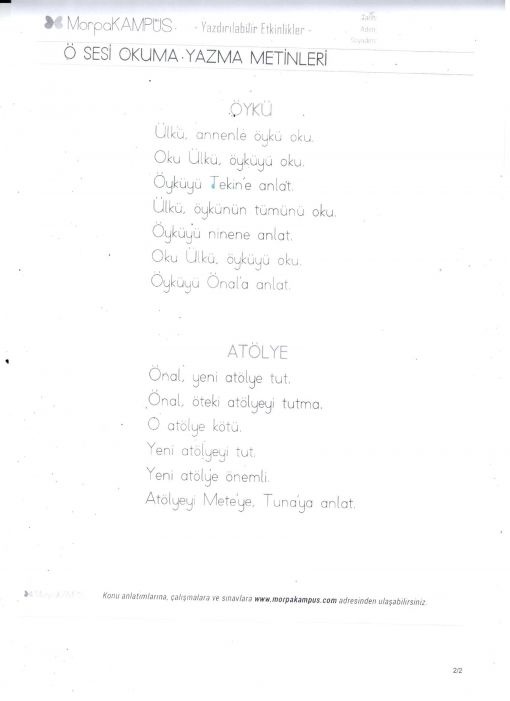 MorpaKAMPÜS - Yazdırılabilir Etkinlikler -
Tarih:
Adım:
Soyadım:
Ö SESİ OKUMA-YAZMA METİNLERİ
ÖYKÜ
Ülkü, annenle öykü oku.
Oku Ülkü, öyküyü oku.
Öyküyü Tekin'e anlat.
Ülkü, öykünün tümünü oku.
Öyküyü ninene anlat.
Oku Ülkü, öyküyü oku.
Öyküyü Önal'a anlat.
ATÖLYE
Önal, yeni atölye tut.
Önal, öteki atölyeyi tutma.
O atölye kötü.
Yeni atölyeyi tut.
Yeni atölye önemli.
Atölyeyi Mete'ye, Tuna'ya anlat.
MorpaKAMPÜS Konu anlatımlarına, çalışmalara ve sınavlara www.morpakampus.com adresinden ulaşabilirsiniz.
2/2